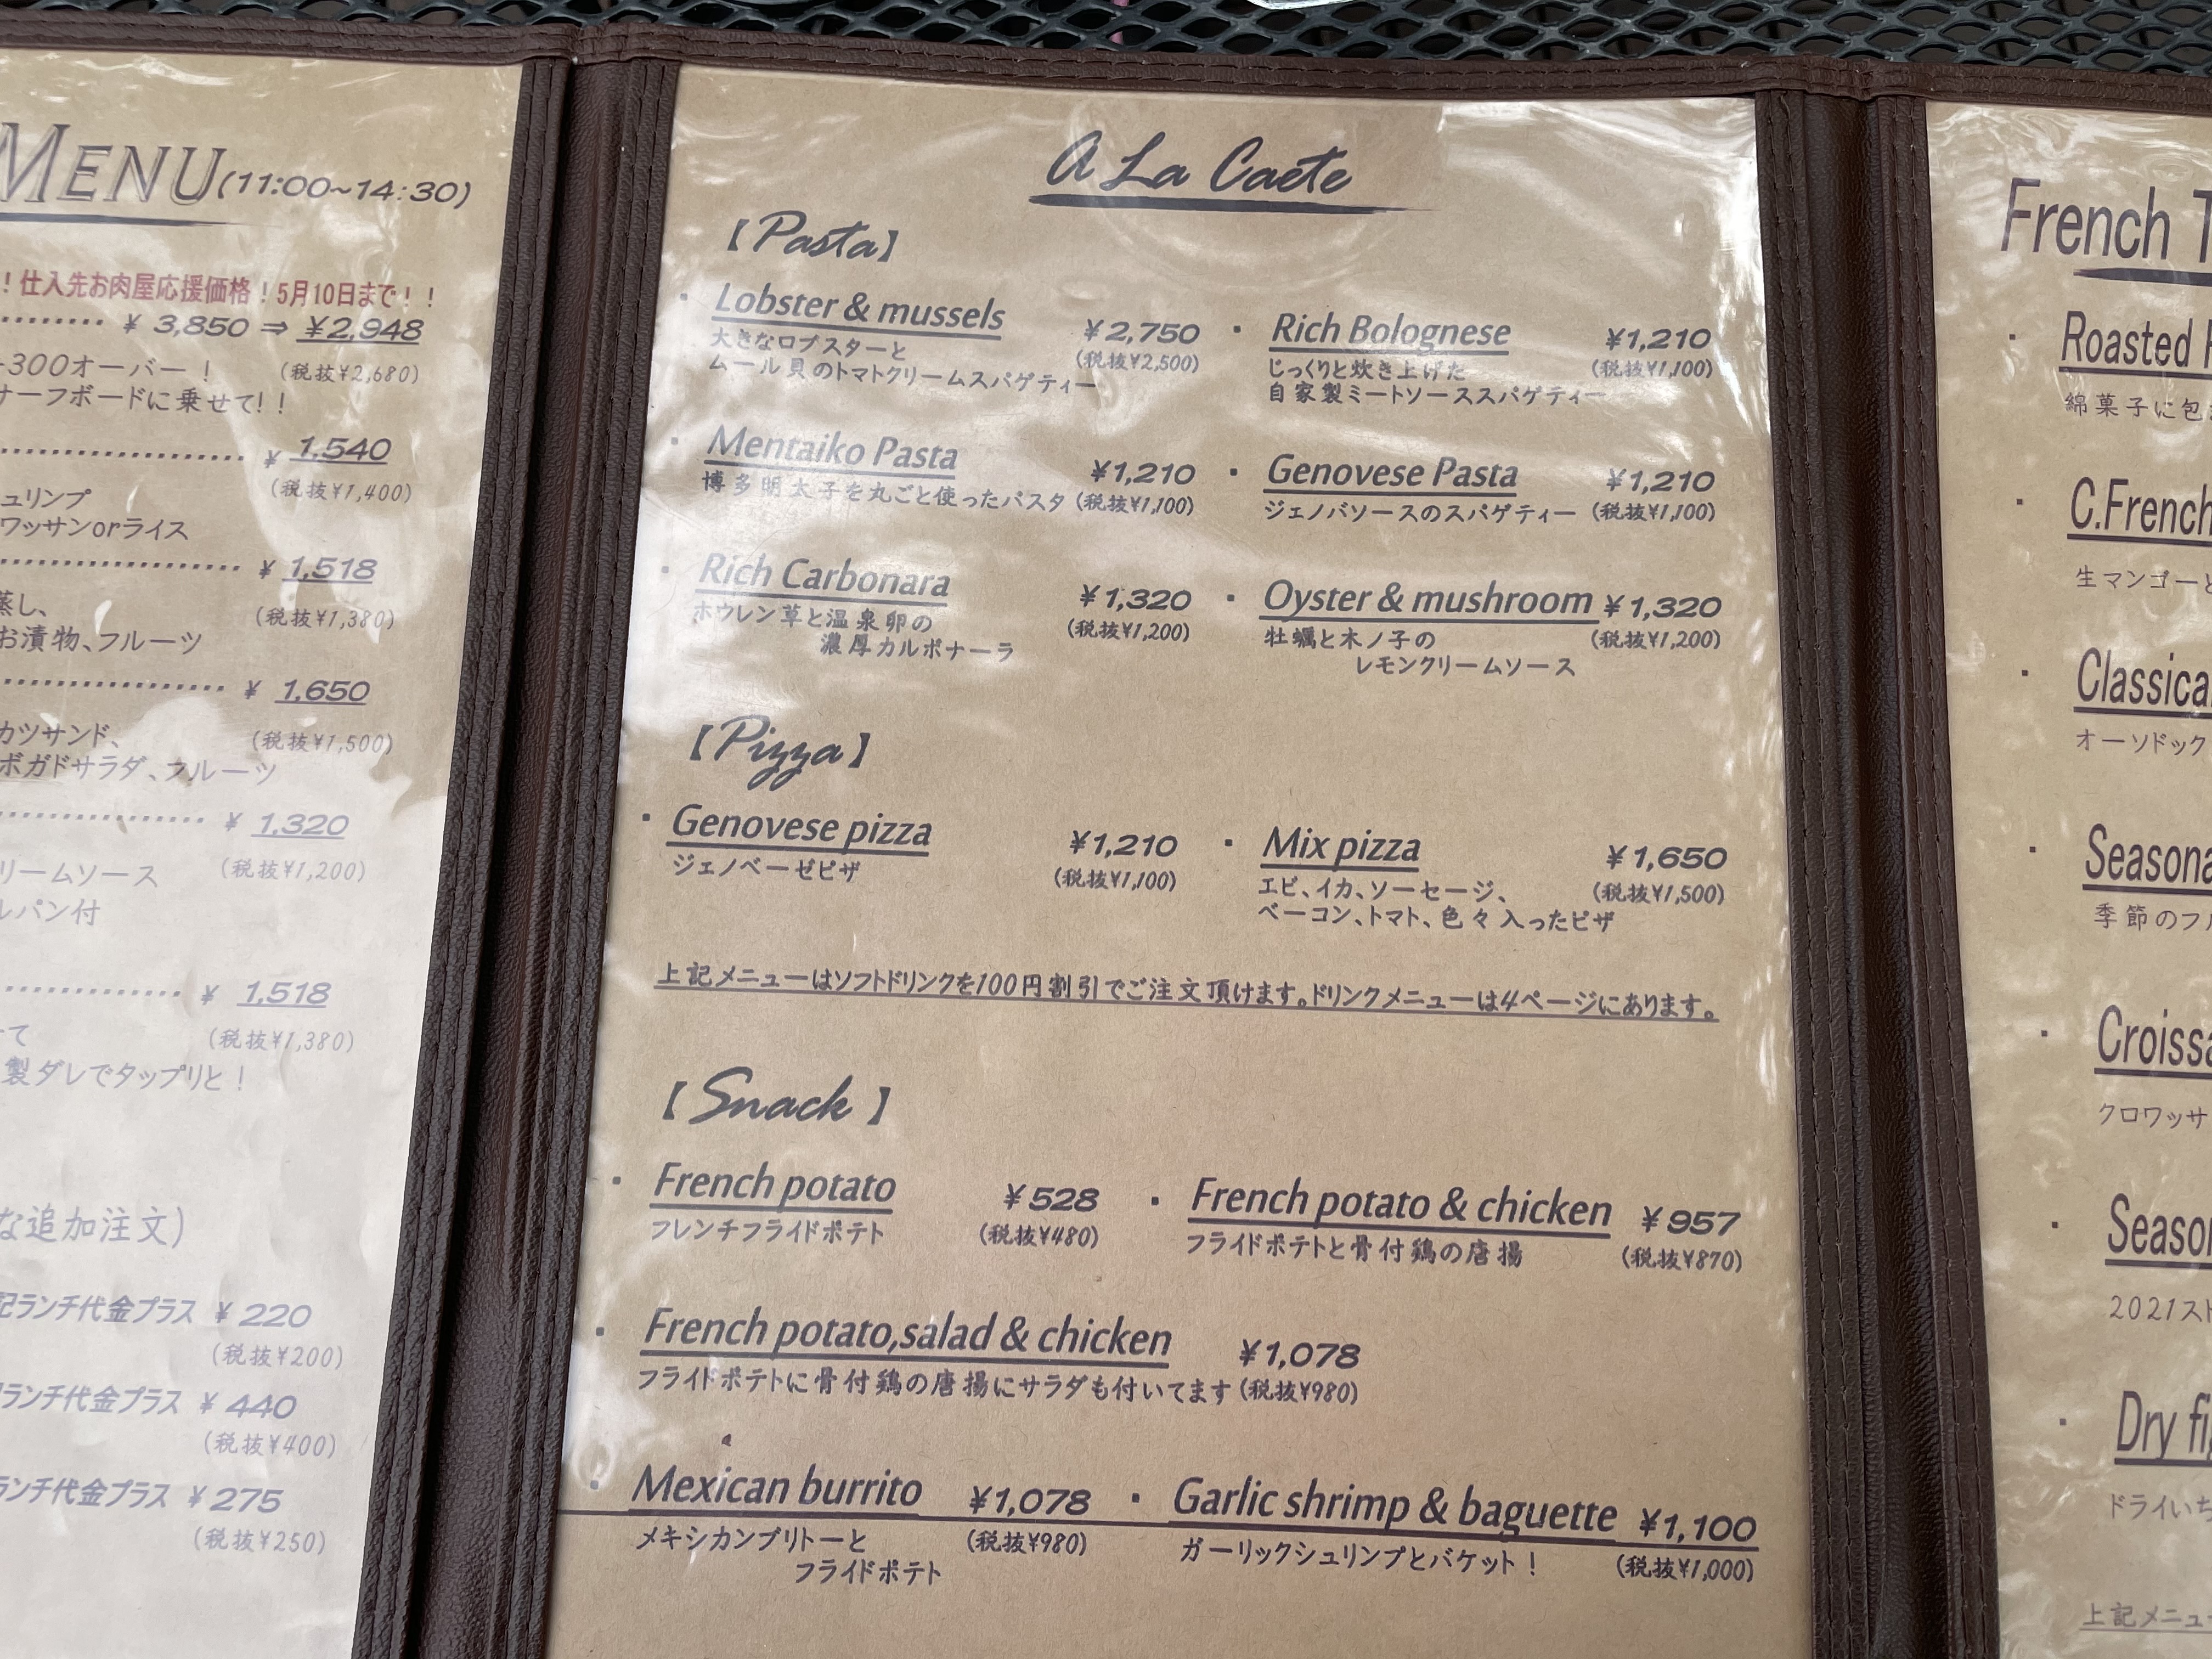 MENU(11:00~14:30)
！仕入先お肉屋応援価格！5月10日まで！！
¥ 3,850 ⇒ ¥2,948
300オーバー！ (税抜¥2,680)
サーフボードに乗せて！！
¥ 1,540
(税抜¥1,400)
ュリンプ
ワッサンorライス
¥ 1,518
蒸し、 (税抜¥1,380)
お漬物、フルーツ
¥ 1,650
カツサンド、 (税抜¥1,500)
ボガドサラダ、フルーツ
¥ 1,320
リームソース (税抜¥1,200)
ルパン付
¥ 1,518
て (税抜¥1,380)
製ダレでタップリと！
な追加注文)
記ランチ代金プラス ¥ 220
(税抜¥200)
ランチ代金プラス ¥ 440
(税抜¥400)
ランチ代金プラス ¥ 275
(税抜¥250)
A La Caete
【Pasta】
・Lobster & mussels ¥2,750
大きなロブスターと (税抜¥2,500)
ムール貝のトマトクリームスパゲティー
・Rich Bolognese ¥1,210
じっくりと炊き上げた (税抜¥1,100)
自家製ミートソーススパゲティー
・Mentaiko Pasta ¥1,210
博多明太子を丸ごと使ったパスタ (税抜¥1,100)
・Genovese Pasta ¥1,210
ジェノバソースのスパゲティー (税抜¥1,100)
・Rich Carbonara ¥1,320
ホウレン草と温泉卵の (税抜¥1,200)
濃厚カルボナーラ
・Oyster & mushroom ¥1,320
牡蠣と木ノ子の (税抜¥1,200)
レモンクリームソース
【Pizza】
・Genovese pizza ¥1,210
ジェノベーゼピザ (税抜¥1,100)
・Mix pizza ¥1,650
エビ、イカ、ソーセージ、 (税抜¥1,500)
ベーコン、トマト、色々入ったピザ
上記メニューはソフトドリンクを100円割引でご注文頂けます。ドリンクメニューは4ページにあります。
【Snack】
・French potato ¥528
フレンチフライドポテト (税抜¥480)
・French potato & chicken ¥957
フライドポテトと骨付鶏の唐揚 (税抜¥870)
・French potato,salad & chicken ¥1,078
フライドポテトに骨付鶏の唐揚にサラダも付いてます (税抜¥980)
・Mexican burrito ¥1,078
メキシカンブリトーと (税抜¥980)
フライドポテト
・Garlic shrimp & baguette ¥1,100
ガーリックシュリンプとバケット！ (税抜¥1,000)
French T
・Roasted
綿菓子に包
・C.French
生マンゴーと
・Classical
オーソドック
・Seasona
季節のフル
・Croissa
クロワッサ
・Season
2021スト
・Dry fi
ドライいち
上記メニュ